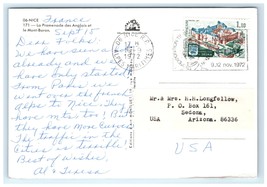 06-NICE
171 - La Promenade des Anglais et
le Mont-Boron.
France
Sept 15
Dear Folks,
We have seen a lot
already and we
have only started
from Paris we
went over the french
alps to Nice. They
have mts too! But
they have more curves.
The traffic in the
cities is terrible!
Best of wishes,
Al & Teresa
1,10
9.12 nov. 1972
Mr & Mrs. H.H.Longfellow,
P. O. Box 161,
Sedona,
Arizona. 86336
USA